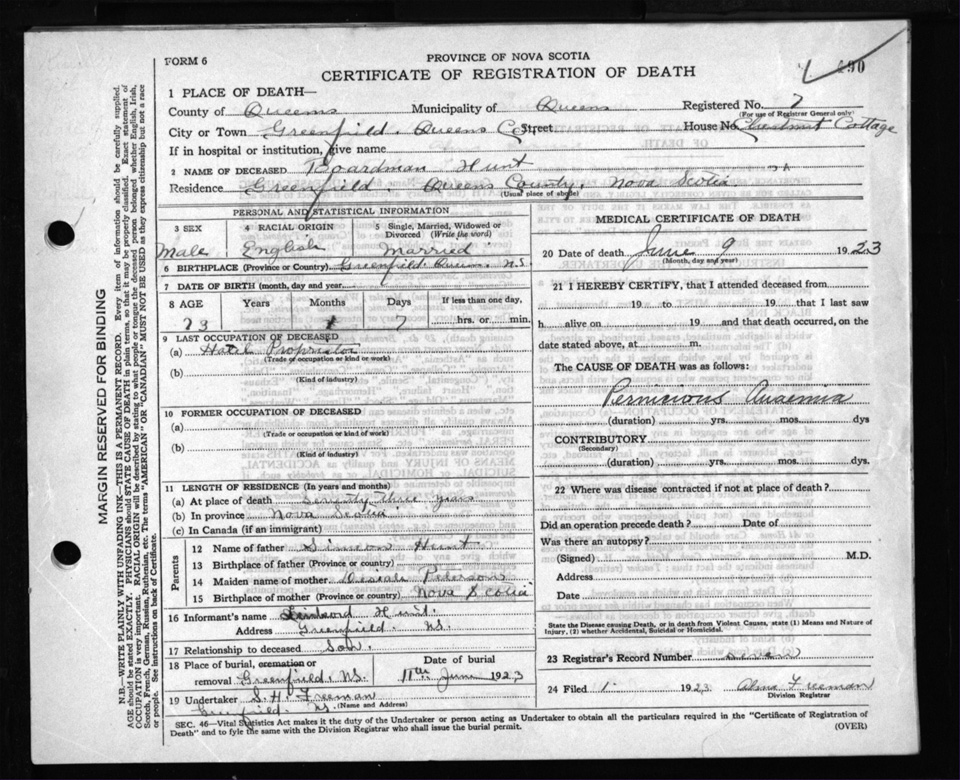 FORM 6
PROVINCE OF NOVA SCOTIA
CERTIFICATE OF REGISTRATION OF DEATH
90
1 PLACE OF DEATH—
County of Queens Municipality of Queens Registered No. 7
(For use of Registrar General only)
City or Town Greenfield. Queens Co. Street House No. Chestnut Cottage
If in hospital or institution, give name
2 NAME OF DECEASED Boardman Hunt
Residence Greenfield. Queens County, Nova Scotia.
(Usual place of abode)
PERSONAL AND STATISTICAL INFORMATION
3 SEX 4 RACIAL ORIGIN 5 Single, Married, Widowed or Divorced (Write the word)
Male English Married
6 BIRTHPLACE (Province or Country) Greenfield. Queens N.S.
7 DATE OF BIRTH (month, day and year)
8 AGE Years Months Days If less than one day,
73 7 hrs. or min.
9 LAST OCCUPATION OF DECEASED
(a) Hotel Proprietor
(Trade or occupation or kind or work)
(b)
(Kind of industry)
10 FORMER OCCUPATION OF DECEASED
(a)
(Trade or occupation or kind of work)
(b)
(Kind of industry)
11 LENGTH OF RESIDENCE (In years and months)
(a) At place of death Seventy three years
(b) In province Nova Scotia
(c) In Canada (if an immigrant)
Parents
12 Name of father Simeon Hunt
13 Birthplace of father (Province or country)
14 Maiden name of mother Desiah Peterson
15 Birthplace of mother (Province or country) Nova Scotia
16 Informant's name Hunt.
Address Greenfield. N.S.
17 Relationship to deceased Son.
18 Place of burial, cremation or removal Greenfield, N.S. Date of burial 11th June 1923
19 Undertaker S. H. Freeman
(Name and Address)
Greenfield. N.S.
MEDICAL CERTIFICATE OF DEATH
20 Date of death June 9 1923
(Month, day and year)
21 I HEREBY CERTIFY, that I attended deceased from
19 to 19 that I last saw
h alive on 19 and that death occurred, on the
date stated above, at m.
The CAUSE OF DEATH was as follows:
Pernicious Anaemia
(duration) yrs. mos. dys
CONTRIBUTORY
(Secondary)
(duration) yrs. mos. dys.
22 Where was disease contracted if not at place of death?
Did an operation precede death? Date of
Was there an autopsy?
(Signed) M.D.
Address
Date
State the Disease causing Death, or in death from Violent Causes, state (1) Means and Nature of Injury, (2) whether Accidental, Suicidal or Homicidal.
23 Registrar's Record Number seven
24 Filed 1923 Alma Freeman
Division Registrar
SEC. 46—Vital Statistics Act makes it the duty of the Undertaker or person acting as Undertaker to obtain all the particulars required in the "Certificate of Registration of
Death" and to fyle the same with the Division Registrar who shall issue the burial permit. (OVER)
MARGIN RESERVED FOR BINDING
N.B.—WRITE PLAINLY WITH UNFADING INK—THIS IS A PERMANENT RECORD. Every item of information should be carefully supplied.
AGE should be stated EXACTLY. PHYSICIANS should STATE CAUSE OF DEATH in plain terms, so that it may be properly classified. Exact statement of
OCCUPATION is very important. RACIAL ORIGIN will be described by stating to what people or tongue the deceased person belonged whether English, Irish,
Scotch, French, German, Russian, Ruthenian, etc. The terms "AMERICAN" OR "CANADIAN" MUST NOT BE USED as they express citizenship but not a race
or people. See instructions on back of Certificate.